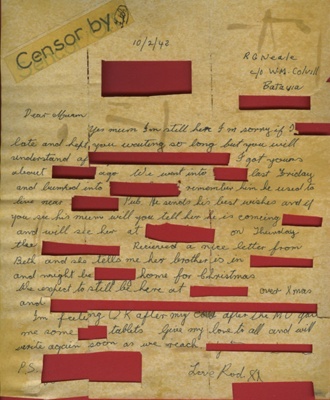 Censor by
10/2/42
R G Neale
c/o W.A. Colvill
Batavia
Dear Mum
Yes mum I'm still here I'm sorry if I
late and left you waiting so long but you will
understand a I got yours
about ago We went into last Friday
and bumped into remember him he used to
live near Pub. He sends his best wishes and if
you see his mum will you tell her he is coming
and will see her at on Thursday
the Received a nice letter from
Beth and she tells me her brother is in
and might be home for Christmas
We expect to still be here at over Xmas
and
I'm feeling OK after my after the M.O gave
me some tablets Give my love to all and will
write again soon as we reach
P.S. Love Rod XX